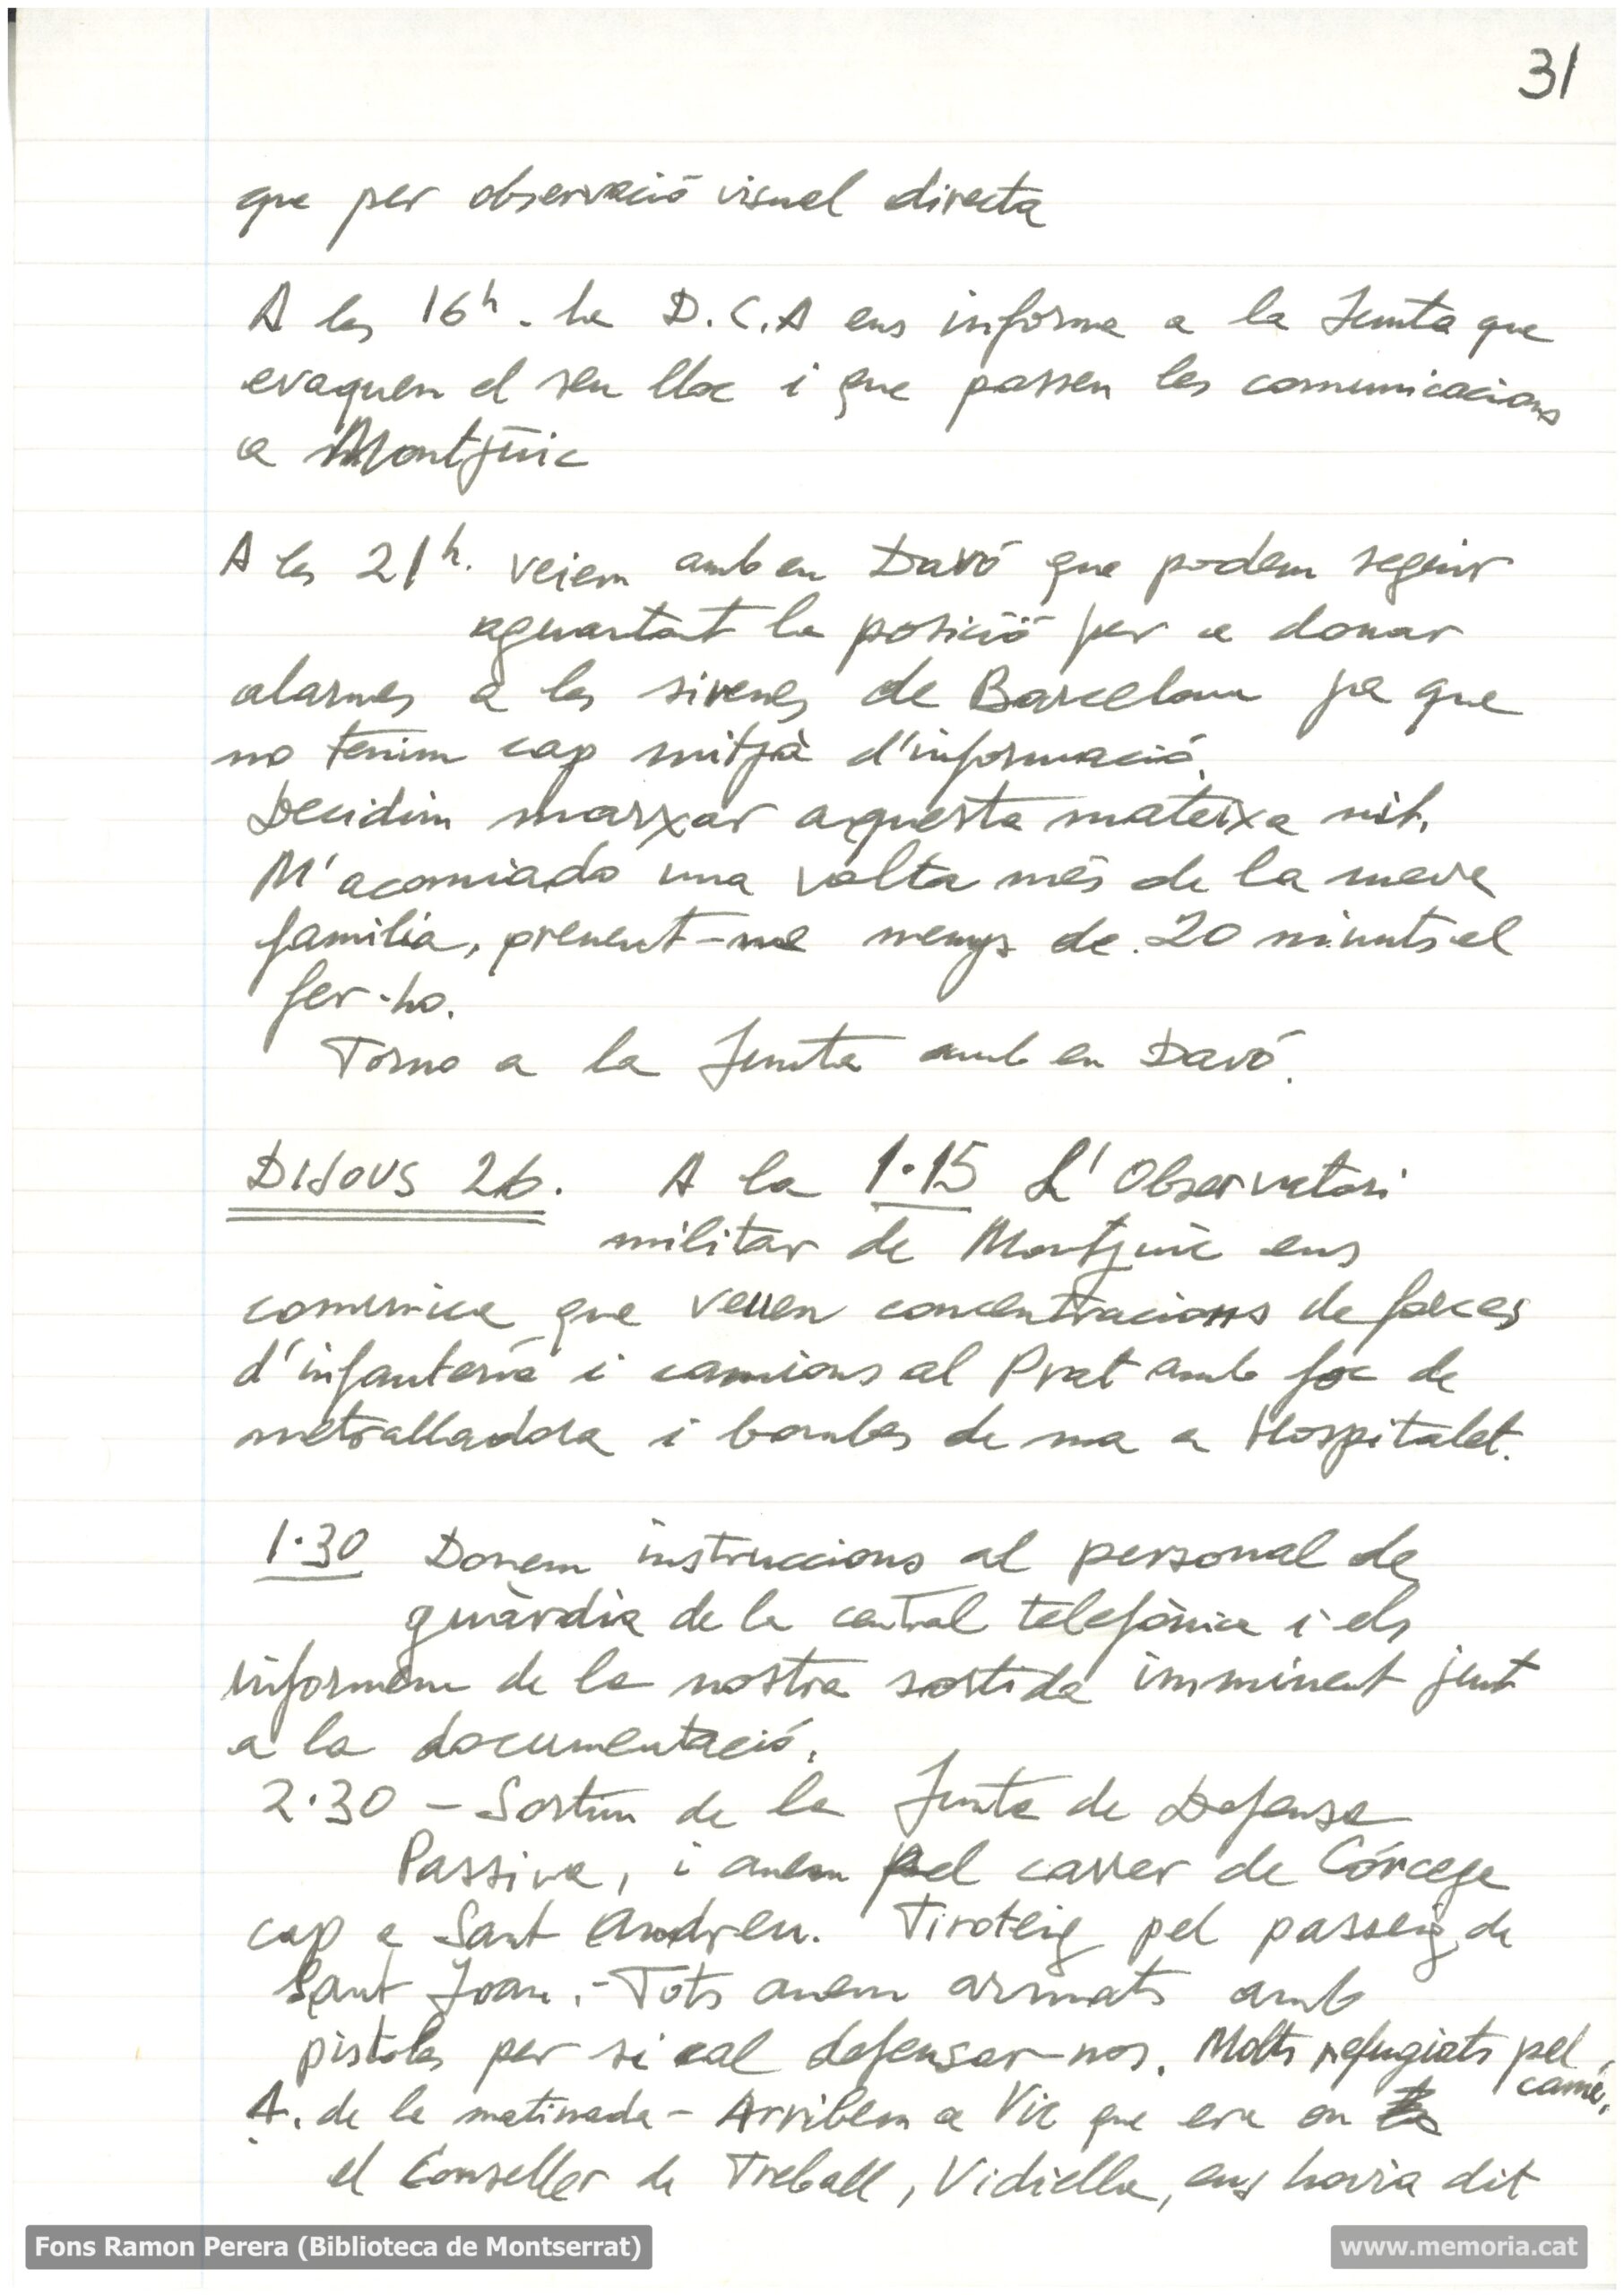 31
que per observació visual directa
A les 16h. La D.C.A ens informa a la Junta que
evaquen el seu lloc i que passen les comunicacions
a Montjüic
A les 21h. veiem amb en Davó que podem seguir
aguantant la posició per a donar
alarmes a les sirenes de Barcelona ja que
no tenim cap mitjà d'informació.
Decidim marxar aquesta mateixa nit.
M'acomiado una volta més de la meva
familia, prenent-me menys de 20 minuts el
fer-ho.
Torno a la Junta amb en Davó.
DIJOUS 26. A la 1.15 L'Observatori
militar de Montjuic ens
comunica que veuen concentracions de forces
d'infanteria i camions al Prat amb foc de
metralladora i bombes de ma a Hospitalet.
1.30 Donem instruccions al personal de
guàrdia de la central telefònica i els
informem de la nostra sortida imminent junt
a la documentació.
2.30 - Sortim de la Junta de Defensa
Passiva, i anem pel carrer de Còrcega
cap a Sant Andreu. Tiroteig pel passeig de
Sant Joan.- Tots anem armats amb
pistoles per si cal defensar-nos. Molts refugiats pel
camí.
A. de la matinada - Arribem a Vic que era on
el Conseller de Treball, Vidiella, ens havia dit
Fons Ramon Perera (Biblioteca de Montserrat)
www.memoria.cat